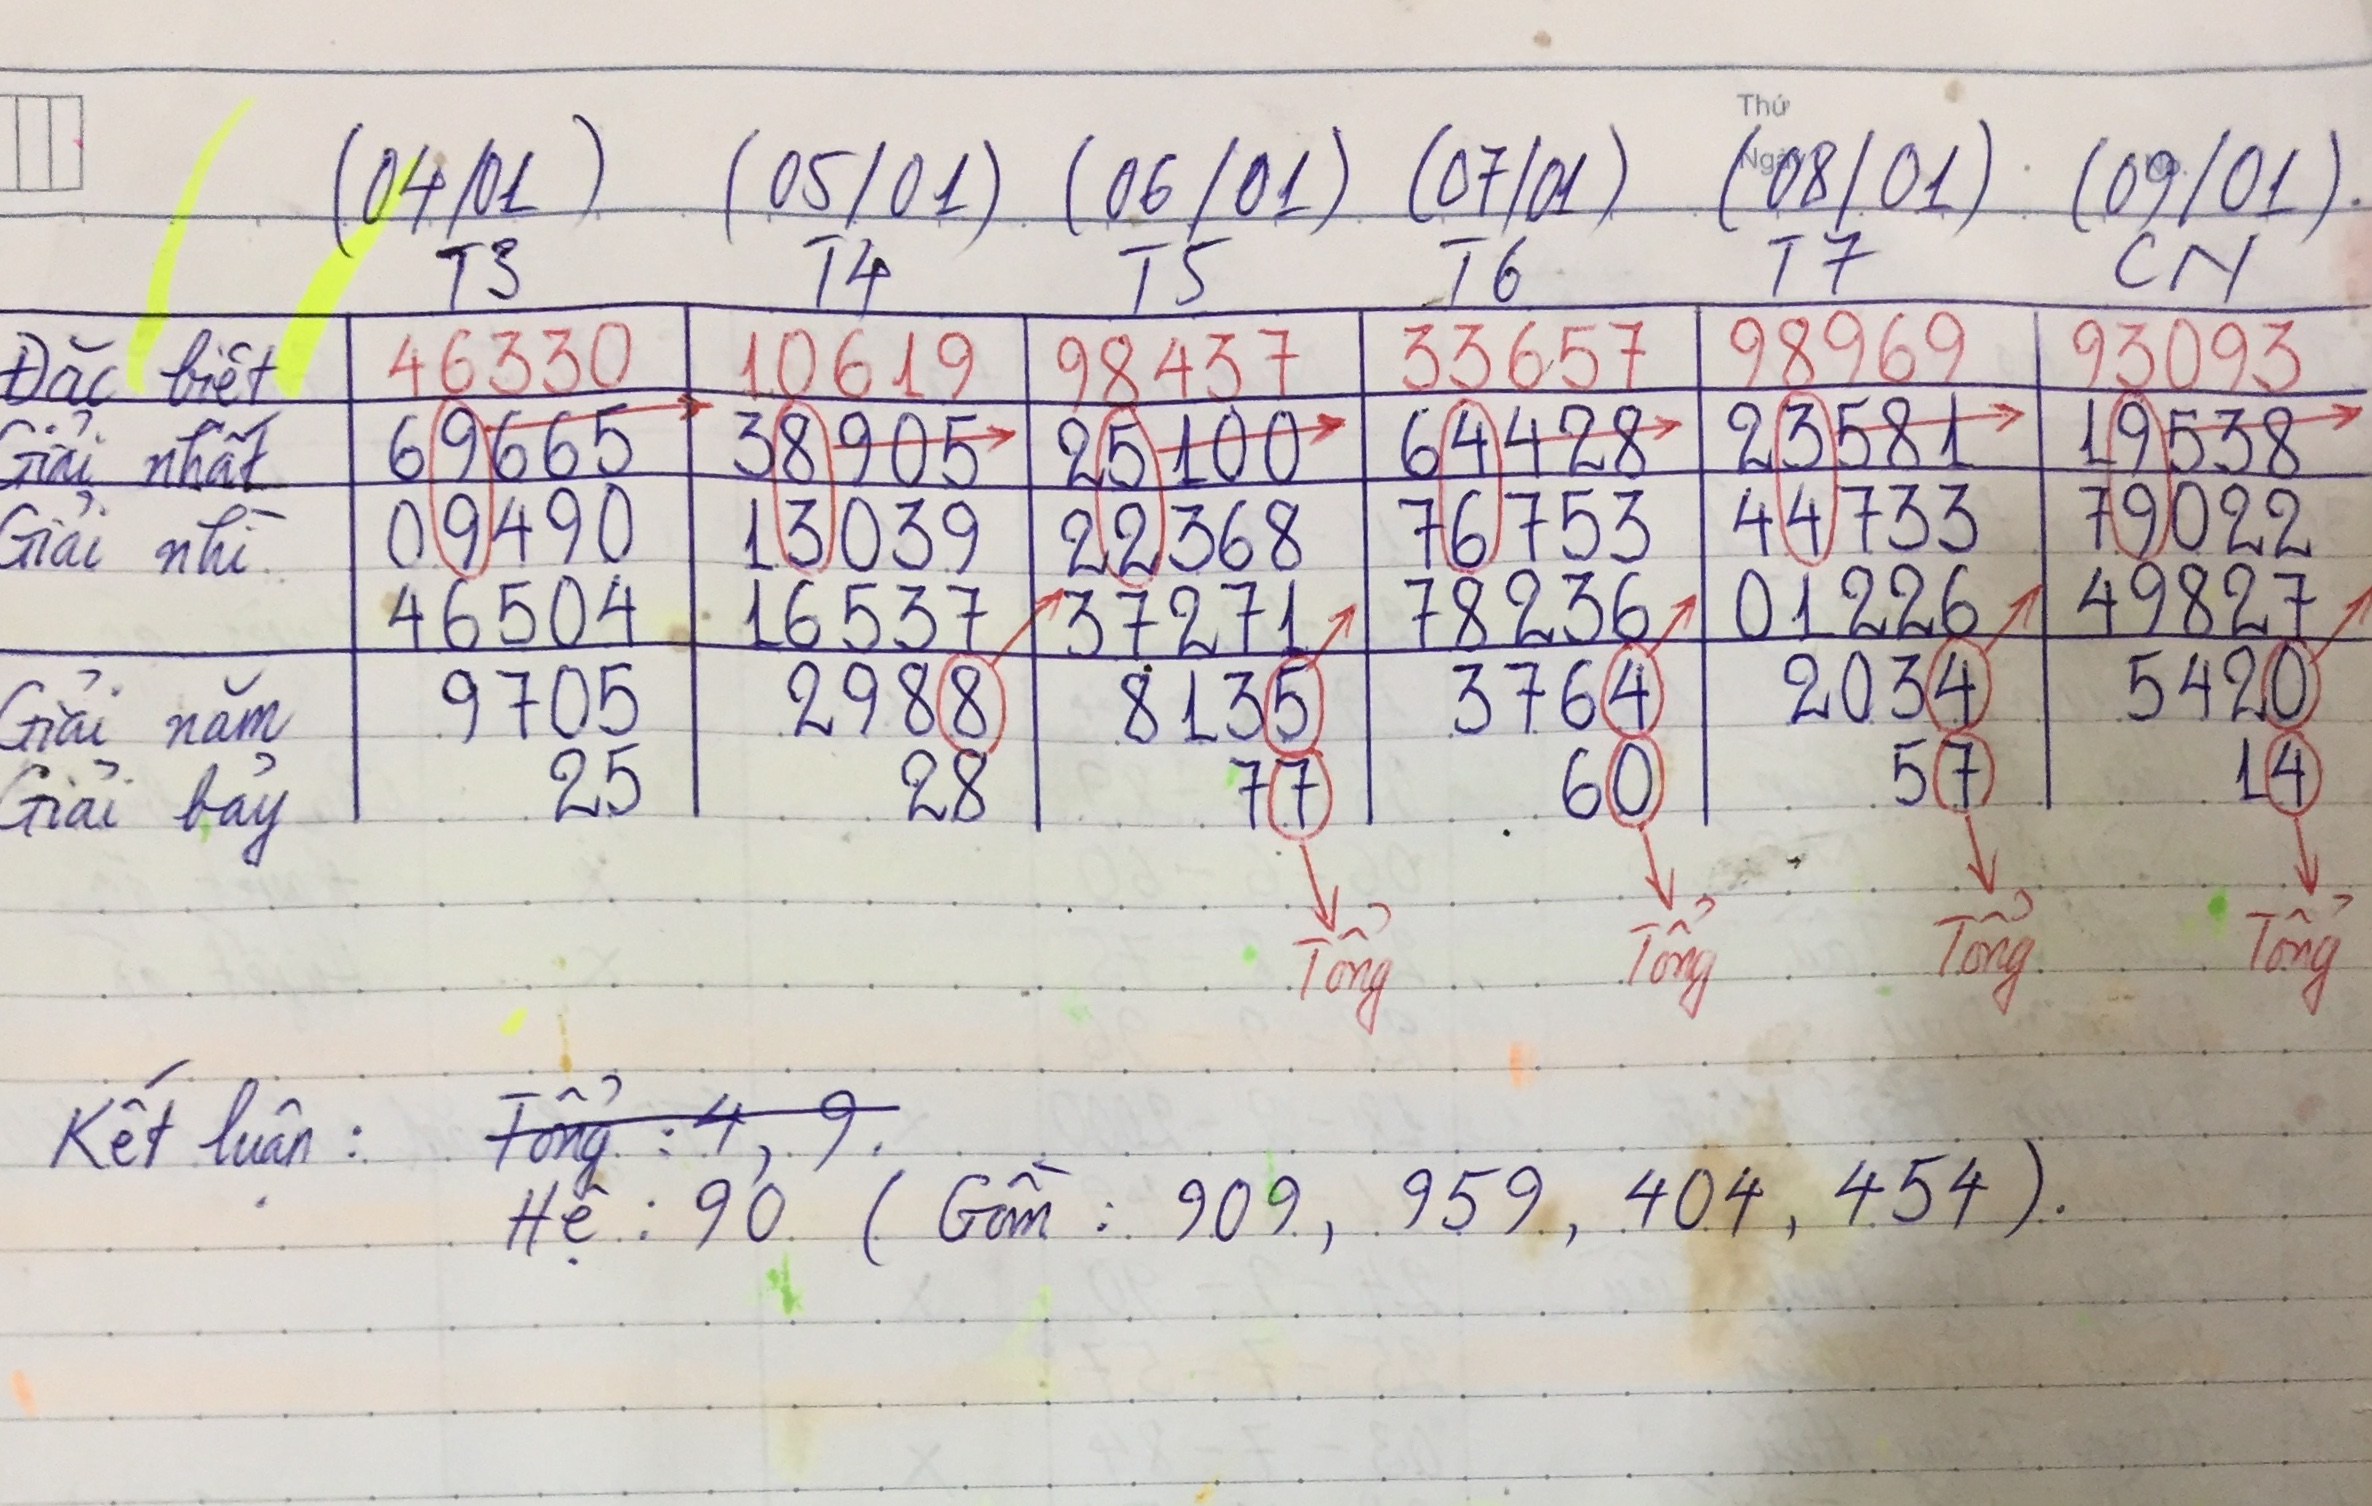 Thứ
Ngày
(04/01) (05/01) (06/01) (07/01) (08/01) (09/01).
T3 T4 T5 T6 T7 CN
Đặc biệt 46330 10619 98437 33657 98969 93093
Giải nhất 69665 38905 25100 64428 23581 19538
Giải nhì 09490 13039 22368 76753 44733 79022
46504 16537 37271 78236 01226 49827
Giải năm 9705 2988 8135 3764 2034 5420
Giải bảy 25 28 77 60 57 14
Tổng Tổng Tổng Tổng
Kết luận: Tổng: 4, 9.
Hệ: 90 (Gồm: 909, 959, 404, 454).